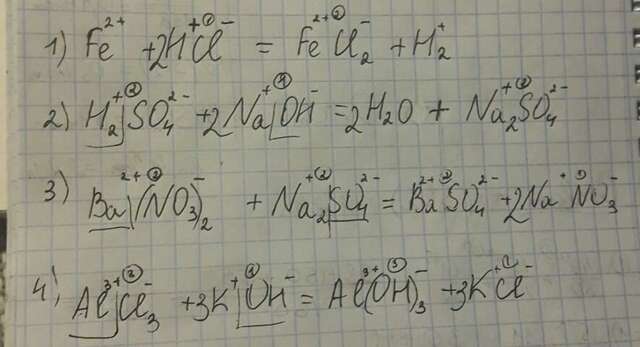 1) Fe²⁺ + 2H⁺①Cl⁻ = Fe²⁺②Cl₂⁻ + H₂⁺
2) H₂⁺②SO₄²⁻ + 2Na⁺①OH⁻ = 2H₂O + Na₂⁺②SO₄²⁻
3) Ba²⁺②(NO₃)₂⁻ + Na₂⁺②SO₄²⁻ = Ba²⁺②SO₄²⁻ + 2Na⁺①NO₃⁻
4) Al³⁺③Cl₃⁻ + 3K⁺①OH⁻ = Al³⁺③(OH)₃⁻ + 3K⁺①Cl⁻